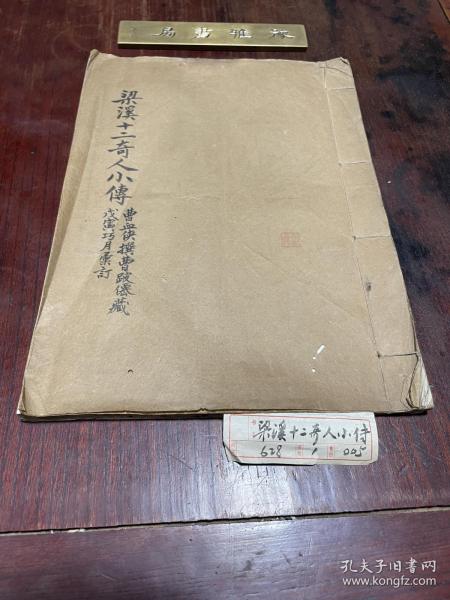 梁溪十二奇人小傳
曹血俠撰曹跛儂藏
戊寅巧月彙訂
梁溪十二奇人小傳
628 1 005
孔夫子旧书网
www.kongfz.com